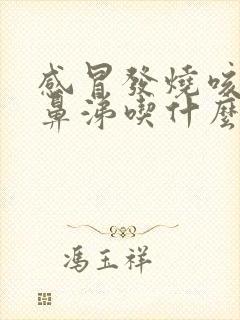 感冒發燒咳
鼻涕喫什麼
馮玉祥